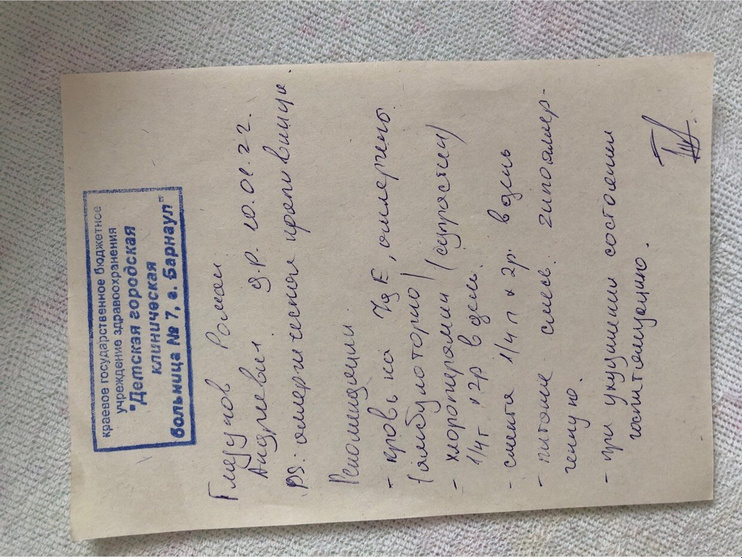 краевое государственное бюджетное
учреждение здравоохранения
"Детская городская
клиническая
больница № 7, г. Барнаул"
Глазунов Роман
Андреевич д.р. 10.01.22г.
DS: аллергическая крапивница
Рекомендации.
- кровь на IgE, аллергены.
(амбулаторно)
- хлоропирамин (супрастин)
1/4т х 2р в день.
- смекта 1/4 п х 2р. в день
- питание смес. гипоаллер-
генную.
- при ухудшении состоянии
госпитализацию.